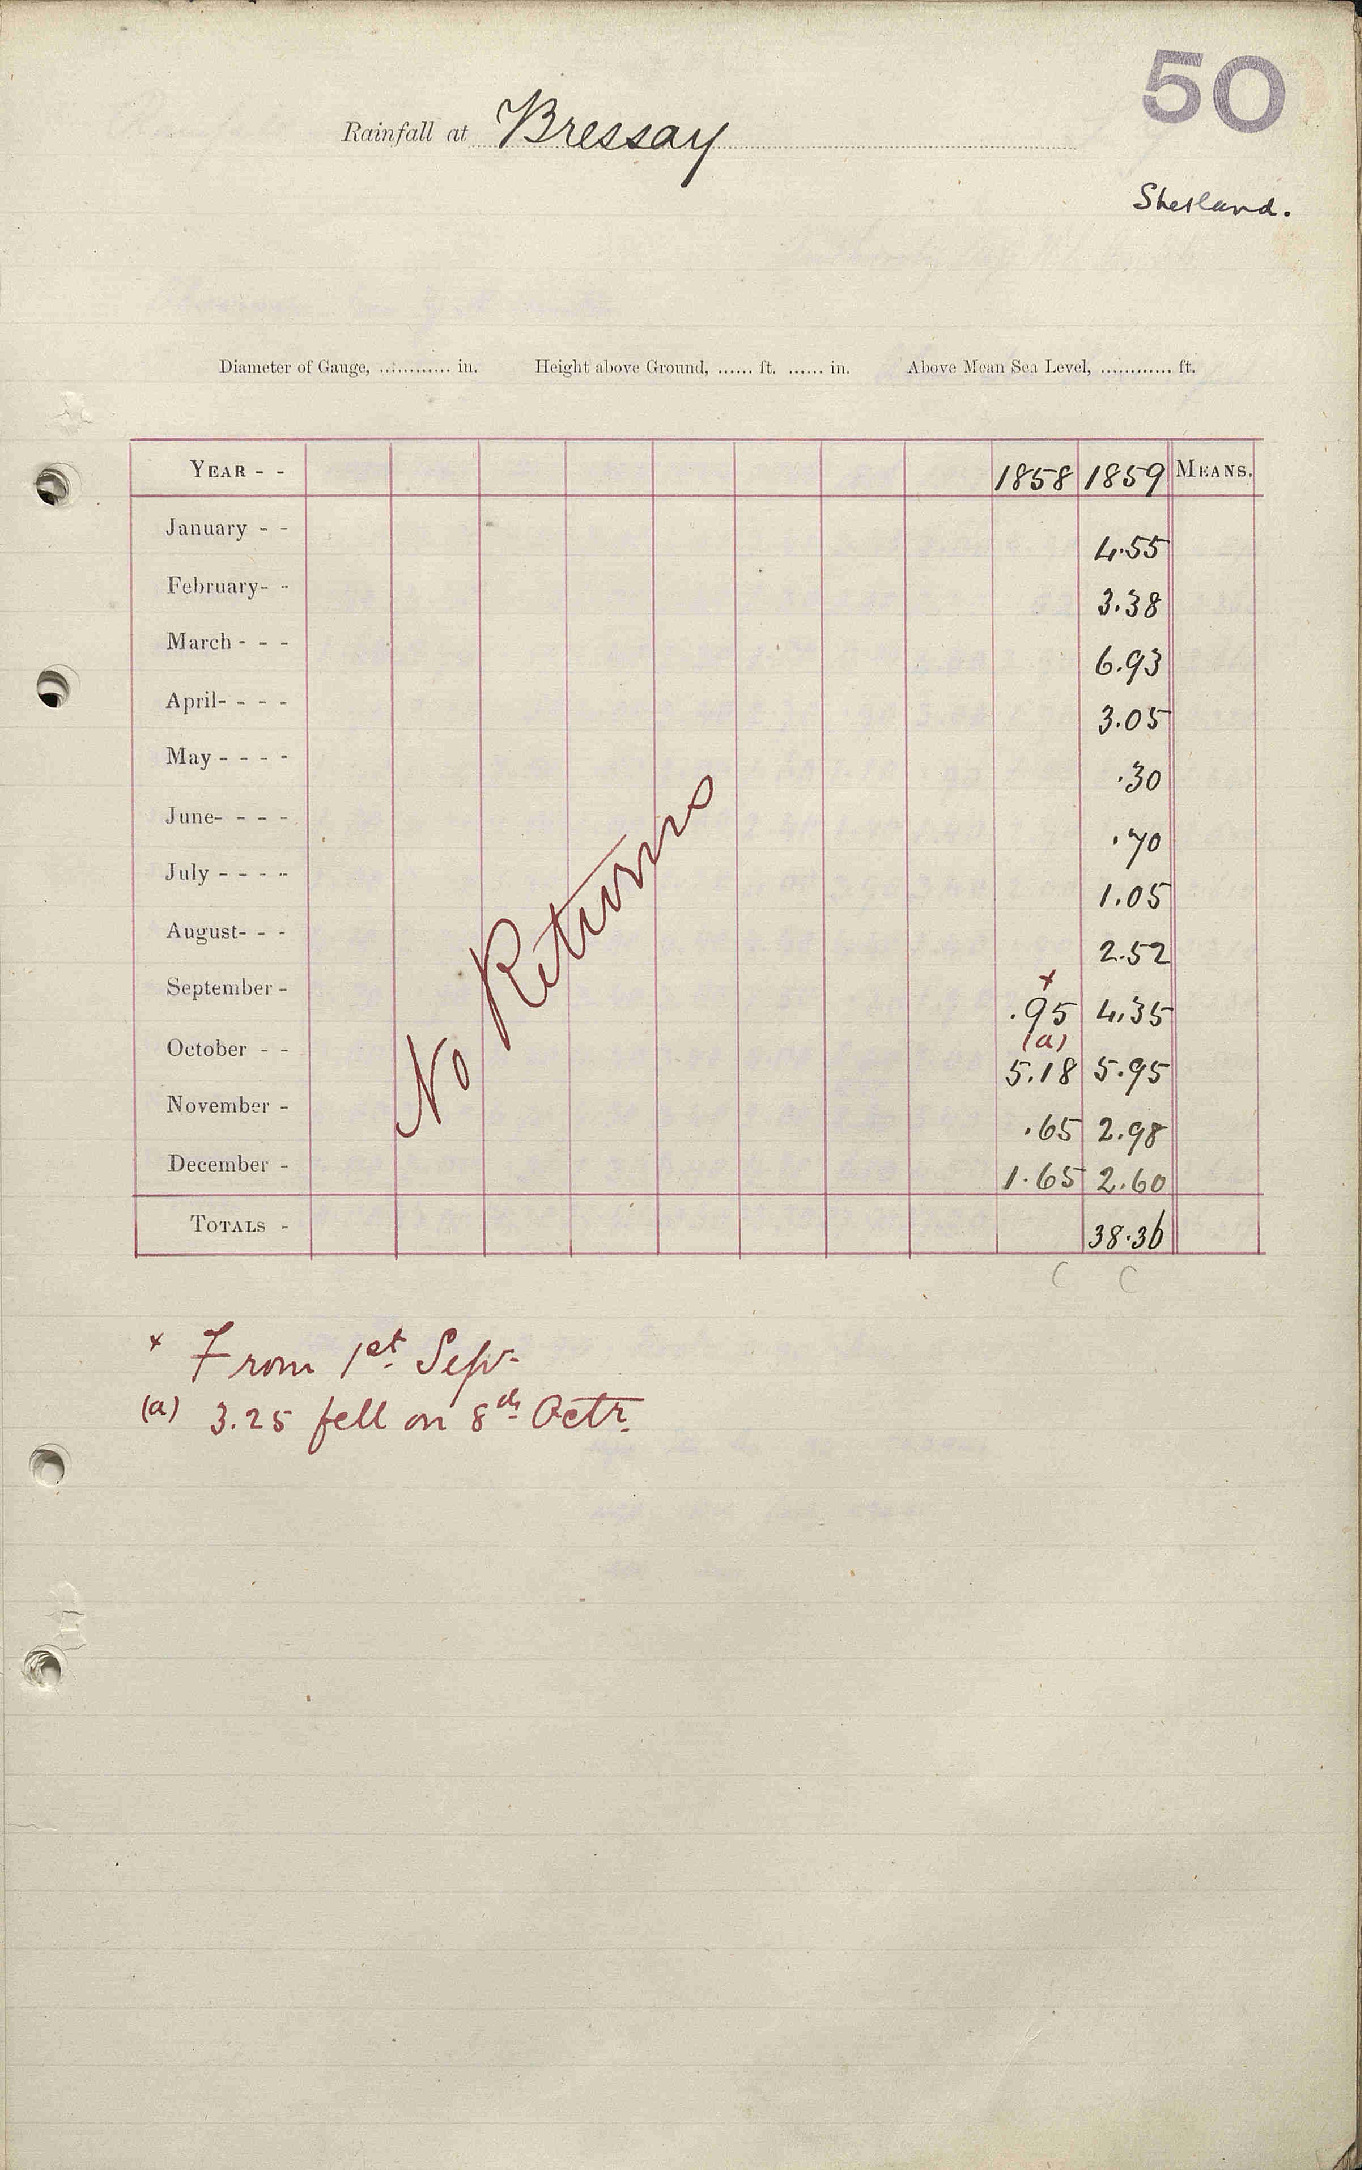 50
Rainfall at Bressay
Shetland.
Diameter of Gauge, ............ in. Height above Ground, ...... ft. ...... in. Above Mean Sea Level, ............ ft.
YEAR - - 1858 1859 MEANS.
January - - 4.55
February- - 3.38
March - - - 6.93
April- - - - 3.05
May - - - - .30
June- - - - .70
July - - - - 1.05
August- - - 2.52
September - x .95 4.35
October - - (a) 5.18 5.95
November - .65 2.98
December - 1.65 2.60
TOTALS - 38.36
No Returns
C C
x From 1st Sep.
(a) 3.25 fell on 8th Octr.